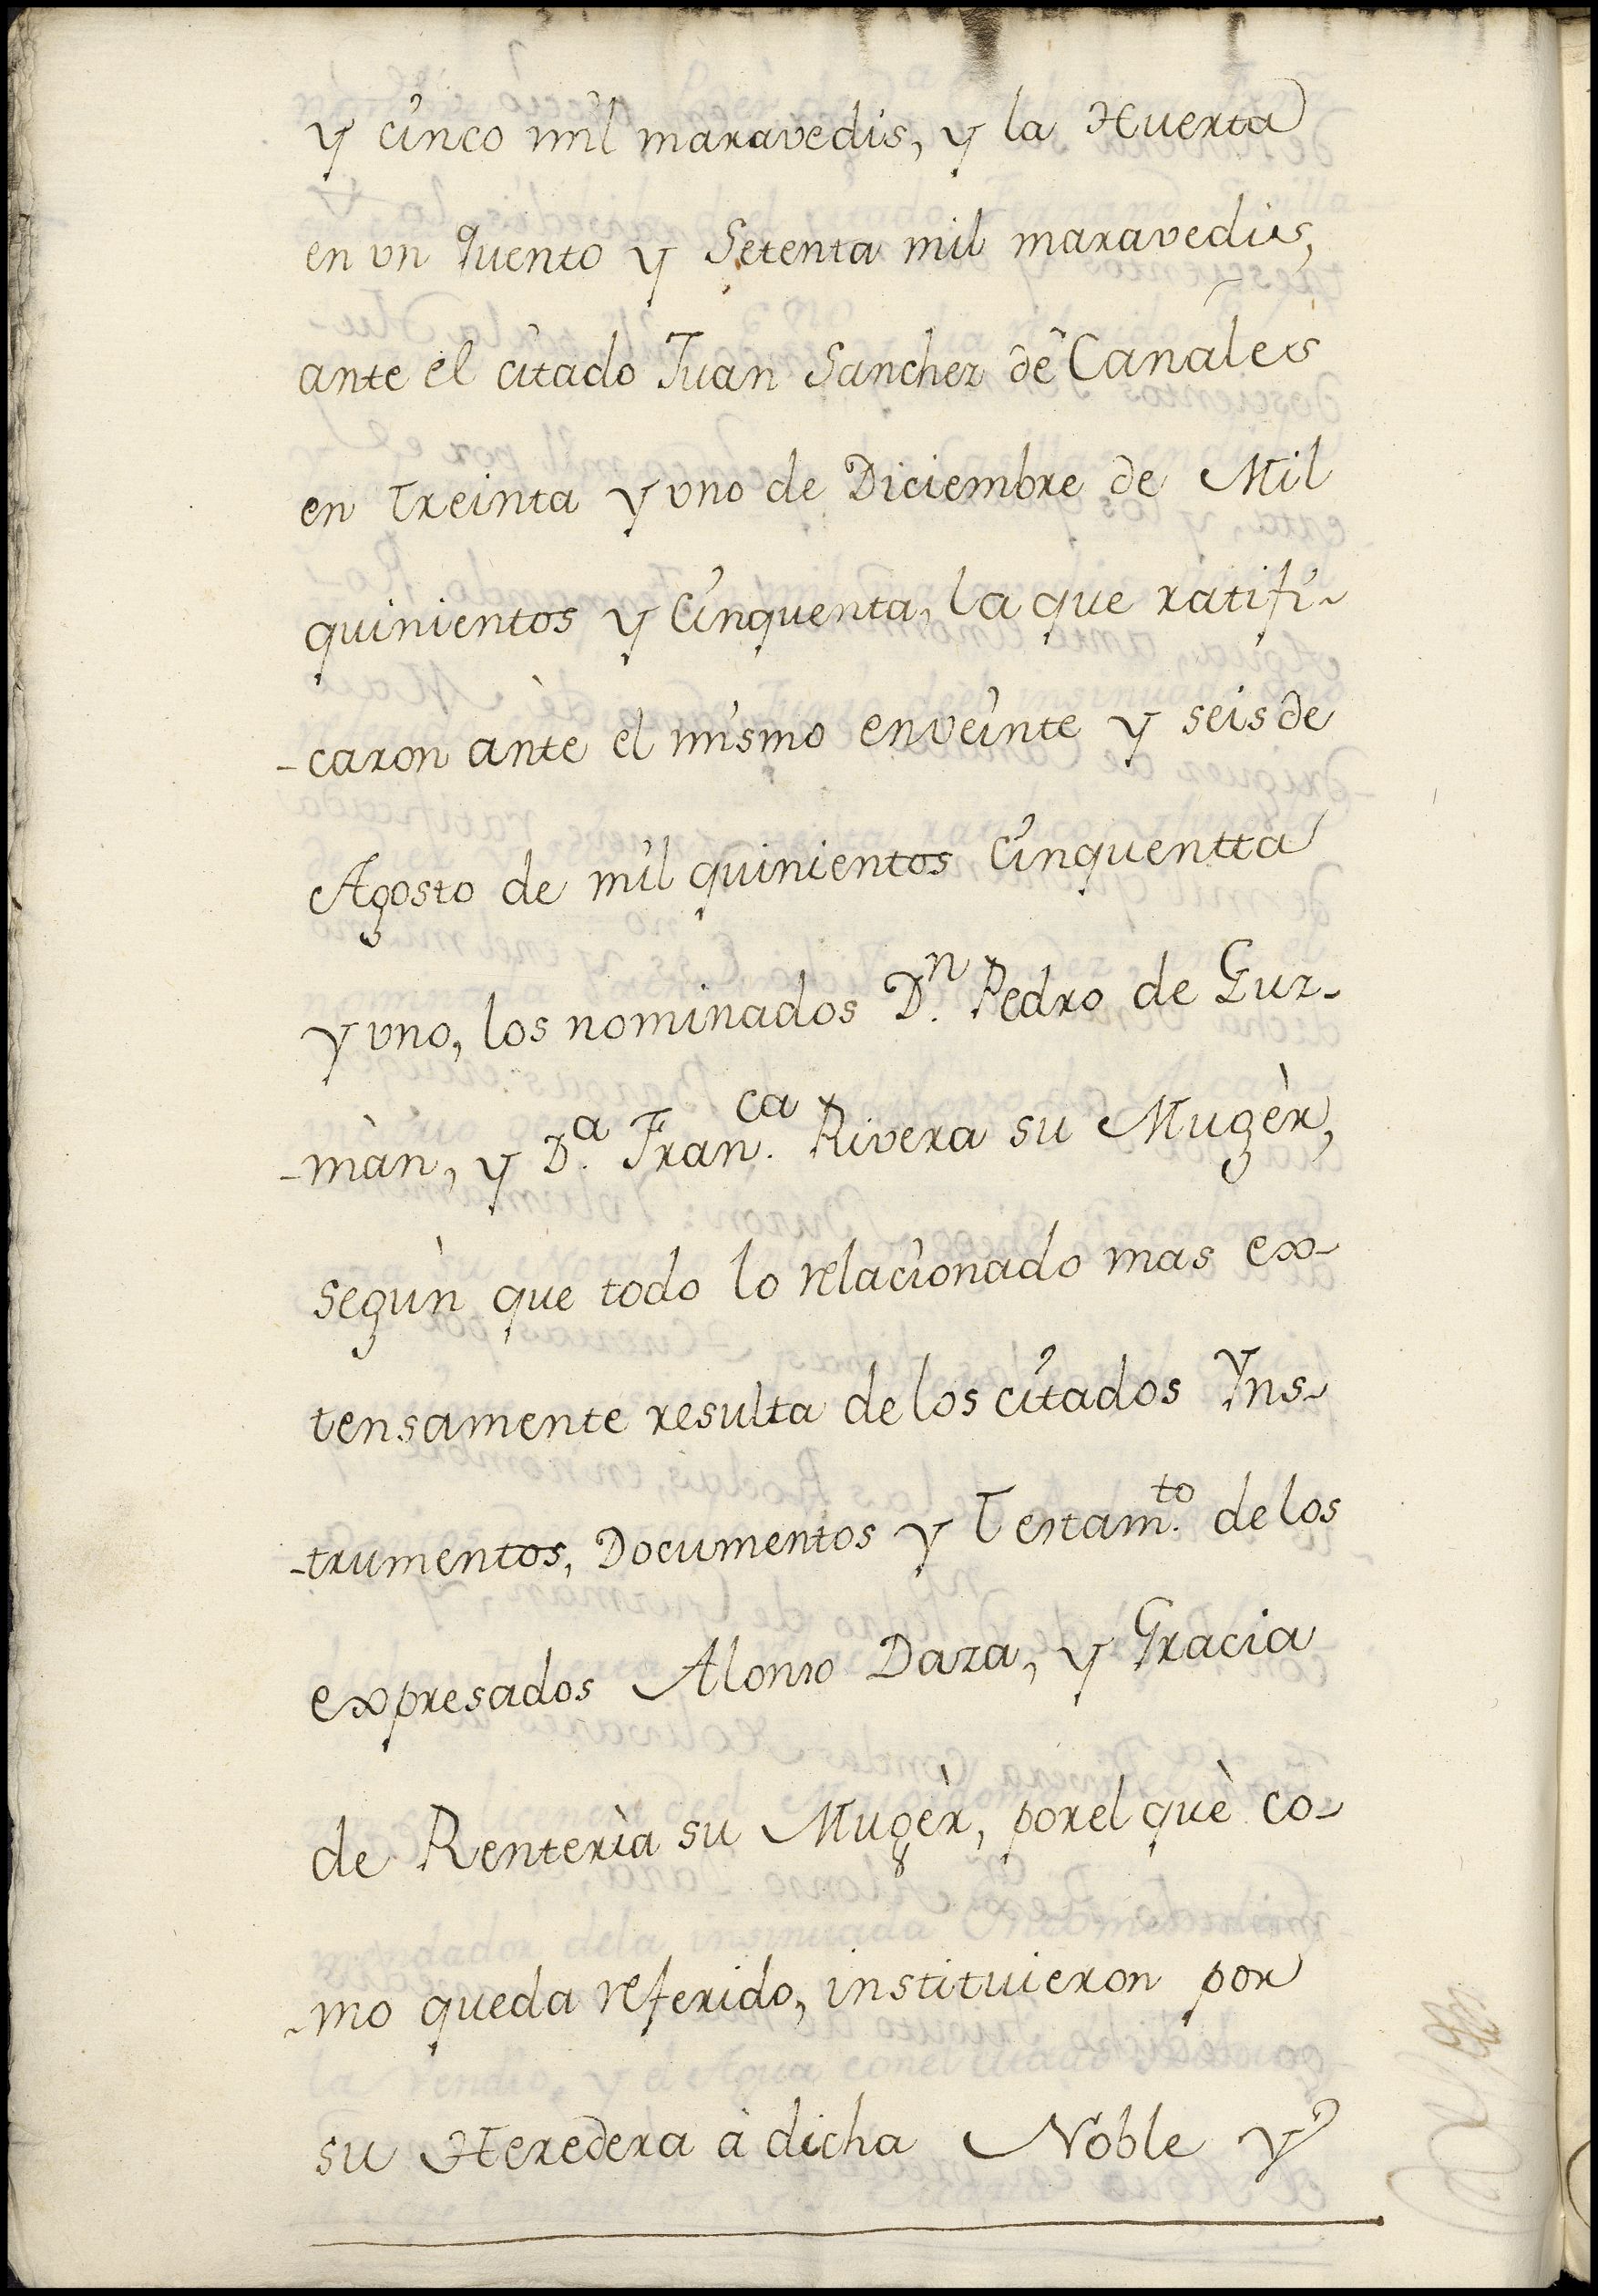 y cinco mil maravedis, y la Huerta
en vn quento y Setenta mil maravedis,
ante el citado Juan Sanchez de Canales
en treinta y vno de Diciembre de Mil
quinientos y Cinquenta, la que ratifi-
-caron ante el mismo enveinte y seis de
Agosto de mil quinientos Cinquentta
y vno, los nominados Dn. Pedro de Guz-
-màn, y Da. Franca. Rivera su Mugèr,
segùn que todo lo relacionado mas ex-
tensamente resulta de los citados Yns-
-trumentos, Documentos y Testamto. de los
expresados Alonso Daza, y Gracia
de Renterìa su Mugèr, porel què co-
-mo queda referido, instituieron por
su Heredera à dicha Noble y